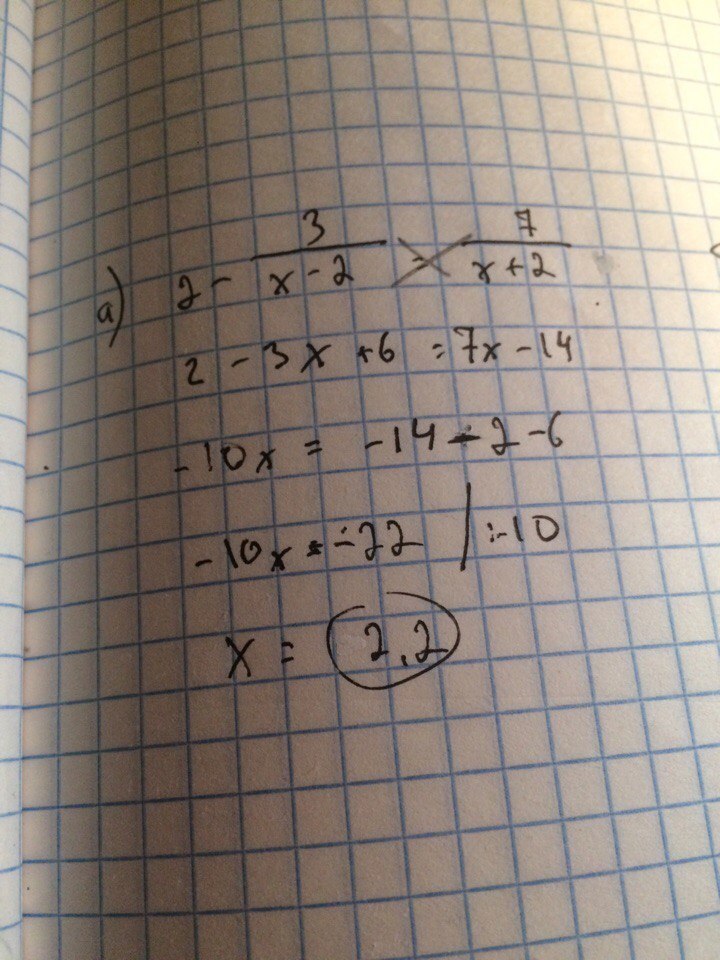 a) 2 - 3/(x - 2) = 7/(x + 2)
2 - 3x + 6 = 7x - 14
-10x = -14 - 2 - 6
-10x = -22 | :-10
x = 2,2